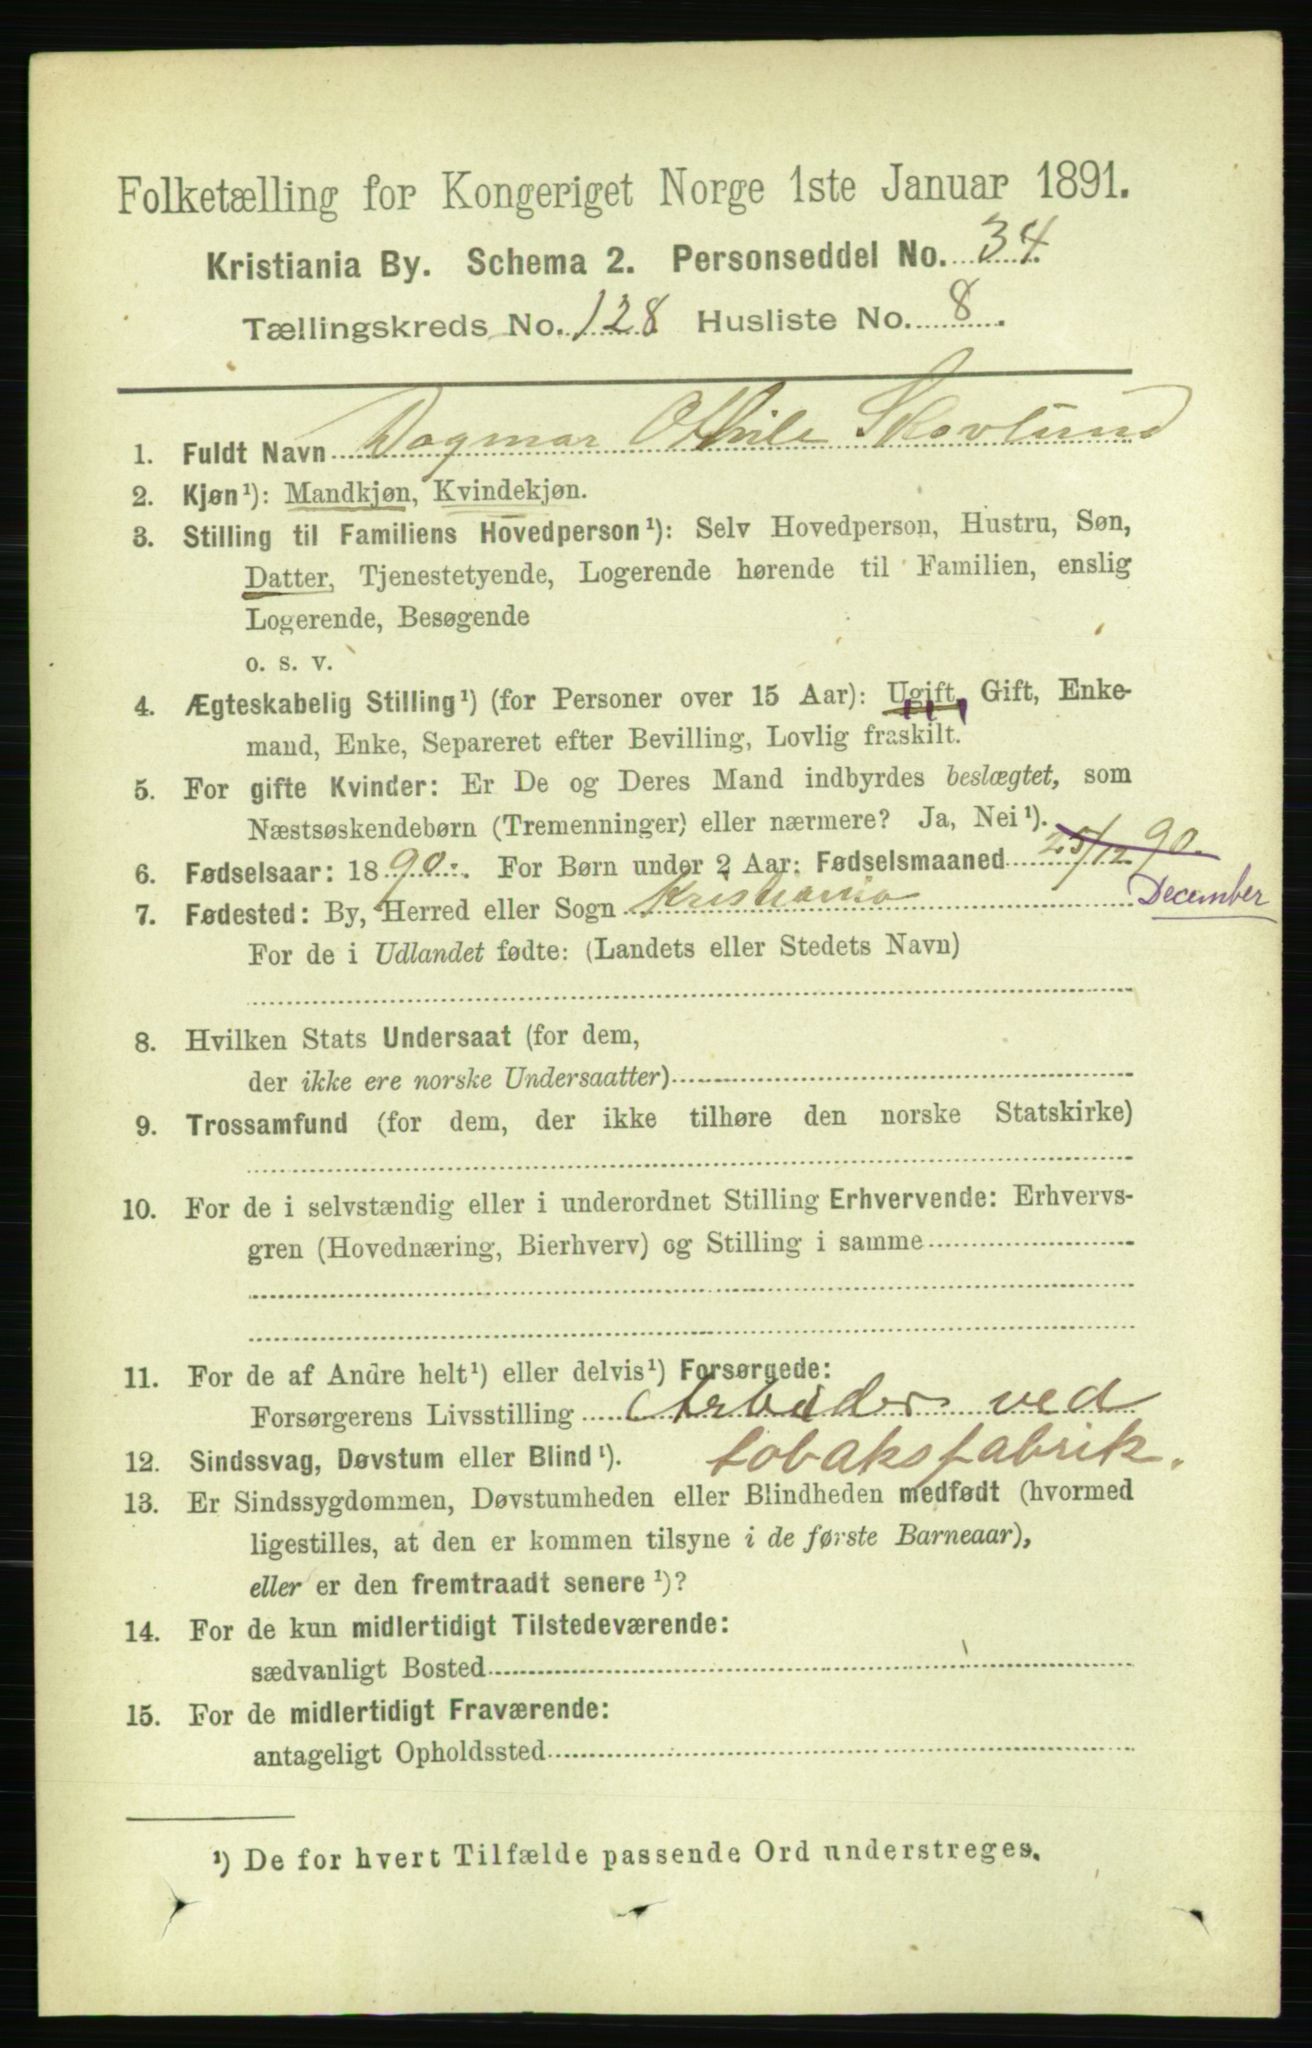 Folketælling for Kongeriget Norge 1ste Januar 1891.
Kristiania By. Schema 2. Personseddel No. 34
Tællingskreds No. 128 Husliste No. 8.
1. Fuldt Navn Dagmar Othile Skovlund
2. Kjøn¹): Mandkjøn, Kvindekjøn.
3. Stilling til Familiens Hovedperson¹): Selv Hovedperson, Hustru, Søn,
Datter, Tjenestetyende, Logerende hørende til Familien, enslig
Logerende, Besøgende
o. s. v.
4. Ægteskabelig Stilling¹) (for Personer over 15 Aar): Ugift, Gift, Enke-
mand, Enke, Separeret efter Bevilling, Lovlig fraskilt.
5. For gifte Kvinder: Er De og Deres Mand indbyrdes beslægtet, som
Næstsøskendebørn (Tremenninger) eller nærmere? Ja, Nei¹).
6. Fødselsaar: 1890. For Børn under 2 Aar: Fødselsmaaned 25/12 90.
December
7. Fødested: By, Herred eller Sogn Kristiania
For de i Udlandet fødte: (Landets eller Stedets Navn)
8. Hvilken Stats Undersaat (for dem,
der ikke ere norske Undersaatter)
9. Trossamfund (for dem, der ikke tilhøre den norske Statskirke)
10. For de i selvstændig eller i underordnet Stilling Erhvervende: Erhvervs-
gren (Hovednæring, Bierhverv) og Stilling i samme
11. For de af Andre helt¹) eller delvis¹) Forsørgede:
Forsørgerens Livsstilling Arbeider ved
tobaksfabrik.
12. Sindssvag, Døvstum eller Blind¹).
13. Er Sindssygdommen, Døvstumheden eller Blindheden medfødt (hvormed
ligestilles, at den er kommen tilsyne i de første Barneaar),
eller er den fremtraadt senere¹)?
14. For de kun midlertidigt Tilstedeværende:
sædvanligt Bosted
15. For de midlertidigt Fraværende:
antageligt Opholdssted
¹) De for hvert Tilfælde passende Ord understreges.